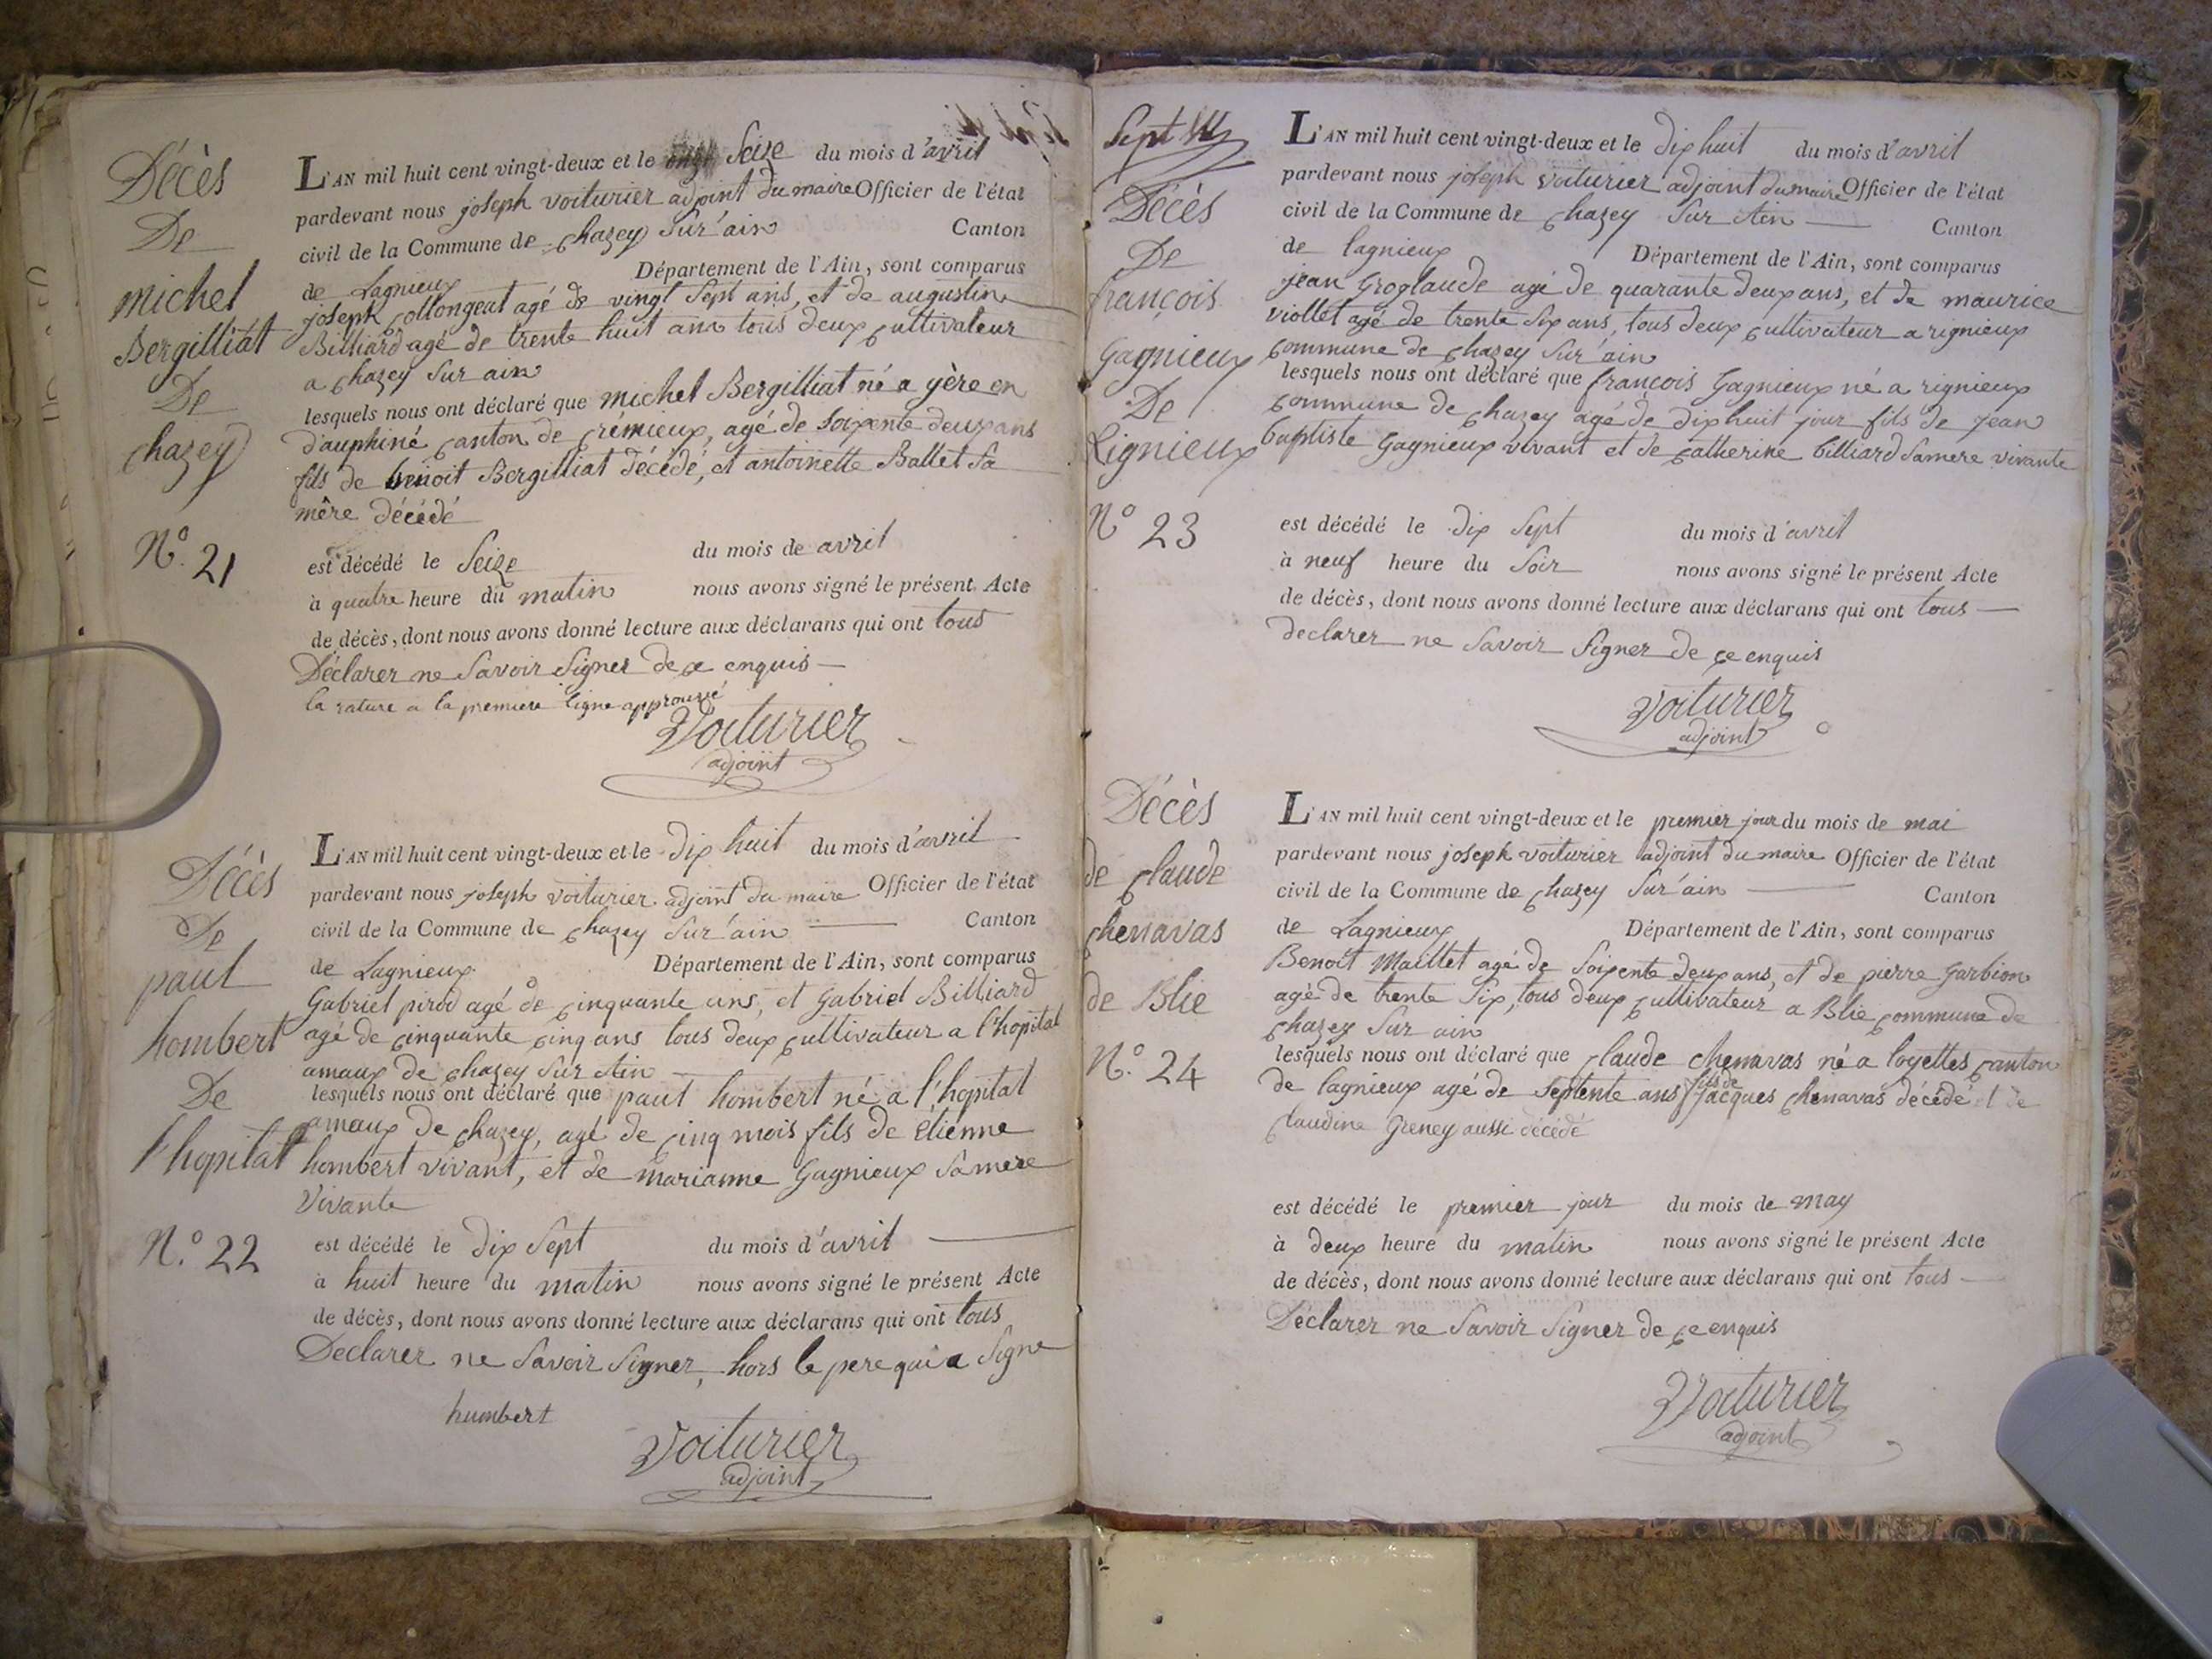 Décès
De
michel
Bergilliat
De
chazey
N.° 21
L'AN mil huit cent vingt-deux et le Seize du mois d'avril
pardevant nous joseph voiturier adjoint du maire Officier de l'état
civil de la Commune de chazey Sur ain Canton
de Lagnieux Département de l'Ain, sont comparus
joseph collongeat agé de vingt Sept ans, et de augustin
Billiard agé de trente huit ans tous deux cultivateur
a chazey Sur ain
lesquels nous ont déclaré que michel Bergilliat né a yère en
dauphiné canton de crémieux, agé de Soixente deux ans
fils de benoit Bergilliat décédé, et antoinette Ballet Sa
mère décédé
est décédé le Seize du mois de avril
à quatre heure du matin nous avons signé le présent Acte
de décès, dont nous avons donné lecture aux déclarans qui ont tous
Déclarer ne Savoir Signer de ce enquis
la rature a la premiere ligne approuvé
Voiturier
adjoint
Décès
De
paul
hombert
De
l'hopital
N.° 22
L'AN mil huit cent vingt-deux et le dix huit du mois d'avril
pardevant nous joseph voiturier adjoint du maire Officier de l'état
civil de la Commune de chazey Sur ain Canton
de Lagnieux Département de l'Ain, sont comparus
Gabriel pirod agé de cinquante ans, et Gabriel Billiard
agé de cinquante cinq ans tous deux cultivateur a l'hopital
amaux de chazey Sur Ain
lesquels nous ont déclaré que paul hombert né a l'hopital
amaux de chazey, agé de cinq mois fils de étienne
hombert vivant, et de marianne Gagnieux Sa mere
Vivante
est décédé le dix Sept du mois d'avril
à huit heure du matin nous avons signé le présent Acte
de décès, dont nous avons donné lecture aux déclarans qui ont tous
Declarer ne Savoir Signer, hors le pere qui a Signe
humbert
Voiturier
adjoint
Sept
Décès
De
françois
Gagnieux
De
Rignieux
N° 23
L'AN mil huit cent vingt-deux et le dix huit du mois d'avril
pardevant nous joseph voiturier adjoint du maire Officier de l'état
civil de la Commune de chazey Sur Ain Canton
de lagnieux Département de l'Ain, sont comparus
jean Groglaude agé de quarante deux ans, et de maurice
viollet agé de trente Six ans, tous deux cultivateur a rignieux
commune de chazey Sur ain
lesquels nous ont déclaré que françois Gagnieux né a rignieux
commune de chazey agé de dix huit jour fils de jean
baptiste Gagnieux vivant et de catherine billiard Sa mere vivante
est décédé le dix Sept du mois d'avril
à neuf heure du Soir nous avons signé le présent Acte
de décès, dont nous avons donné lecture aux déclarans qui ont tous
declarer ne Savoir Signer de ce enquis
Voiturier
adjoint
Décès
de claude
chenavas
de Blie
N.° 24
L'AN mil huit cent vingt-deux et le premier jour du mois de mai
pardevant nous joseph voiturier adjoint du maire Officier de l'état
civil de la Commune de chazey Sur ain Canton
de Lagnieux Département de l'Ain, sont comparus
Benoit Maillet agé de Soixente deux ans, et de pierre Garbion
agé de trente Six, tous deux cultivateur a Blie commune de
chazey Sur ain
lesquels nous ont déclaré que claude chenavas né a loyettes canton
de lagnieux agé de Septente ans fils de jacques chenavas décédé et de
claudine Greney aussi décédé
est décédé le premier jour du mois de may
à deux heure du matin nous avons signé le présent Acte
de décès, dont nous avons donné lecture aux déclarans qui ont tous
Déclarer ne Savoir Signer de ce enquis
Voiturier
adjoint